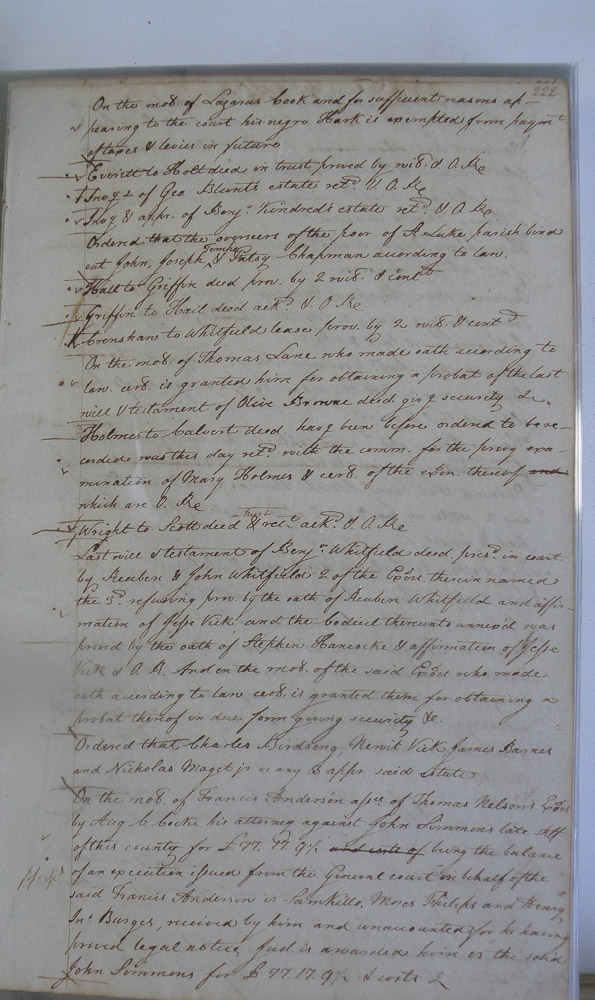 222
On the mod. of Lazarus Cook and for sufficient reasons ap-
pearing to the court his negro Hark is exempted from paymt
of taxes & levies in future
Everett to Holt deed in trust proved by wid. & O. Re
Invy 2 of Geo. Blunts estate retd. & O. Re
Invy & appr. of Benjn Kindred's estate retd. & O Re
Ordered that the overseers of the poor of St Luke parish bind
out John, Joseph, Tempe & Patsy Chapman according to law.
Hall to Griffin deed prov. by 2 wid. & contd
Griffin to Hail deed ackd. & O. Re
Crenshaw to Whitfield lease prov. by 2 wid. & contd
On the mod. of Thomas Lane who made oath according to
law. cerd. is granted him for obtaining a probat of the last
will & testament of Olive Browne decd. givg security &c.
Holmes to Calvert deed. havg been before ordered to be re-
corded was this day retd. with the comm. for the privy exa-
mination of Mary Holmes & cerd. of the exon. thereof and
which are O. Re
Wright to Scott deed & rect. ackd. & O. Re
Last will & testament of Benjn. Whitfield decd. presd. in court
by Reuben & John Whitfield 2 of the Exors. therein named
the 3d. refusing prov. by the oath of Reuben Whitfield and affir-
mation of Jesse Vick, and the codicil thereunto annexed was
proved by the oath of Stephen Hancocke & affirmation of Jesse
Vick & O. R. And on the mod. of the said Exors who made
oath according to law cerd. is granted them for obtaining a
probat thereof in due form giving security &c.
Ordered that Charles Birdsong, Newit Vick James Barnes
and Nicholas Maget jr or any 3 appr. said estate
On the mod. of Francis Anderson of Thomas Nelson's Exors
by Aug. C Cocke his attorney against John Simmons late Shff
of this county for £77.17.9½ and costs of being the balance
of an execution issued from the General court on behalf of the
said Francis Anderson vs Sam Kello, Moses Philips and Henry
Jno. Burges, received by him and unaccounted for he having
proved legal notice, Jud. is awarded him vs the said
John Simmons for £77.17.9½ & costs